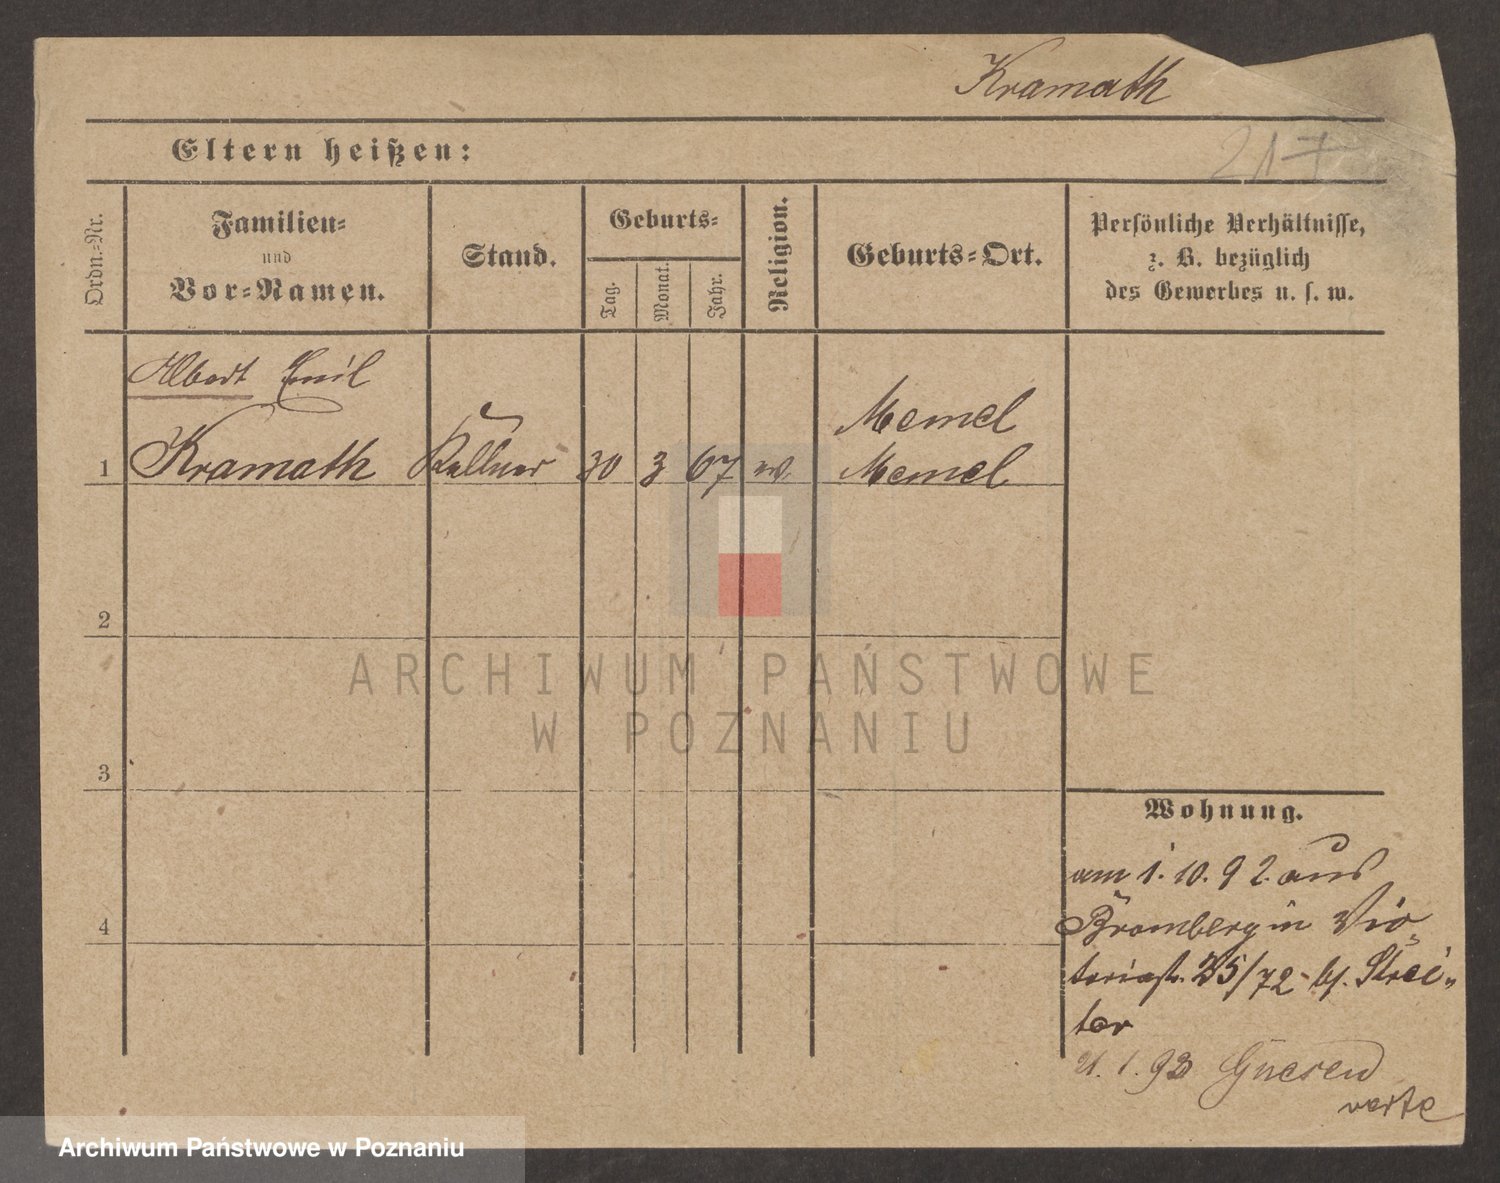 Kramath
217
Eltern heißen:
Ordn.-Nr.
Familien-
und
Vor-Namen.
Stand.
Geburts-
Tag.
Monat.
Jahr.
Religion.
Geburts-Ort.
Persönliche Verhältnisse,
z. B. bezüglich
des Gewerbes u. s. w.
Albert Emil
Memel
1 Kramath Kellner 30 3 67 ev. Memel
2
3
4
ARCHIWUM PAŃSTWOWE
W POZNANIU
Wohnung.
am 1. 10. 92. aus
Bromberg in Vic-
toriastr. 25/72 bei Strei-
ter
21. 1. 93 Gnesen
verte
Archiwum Państwowe w Poznaniu